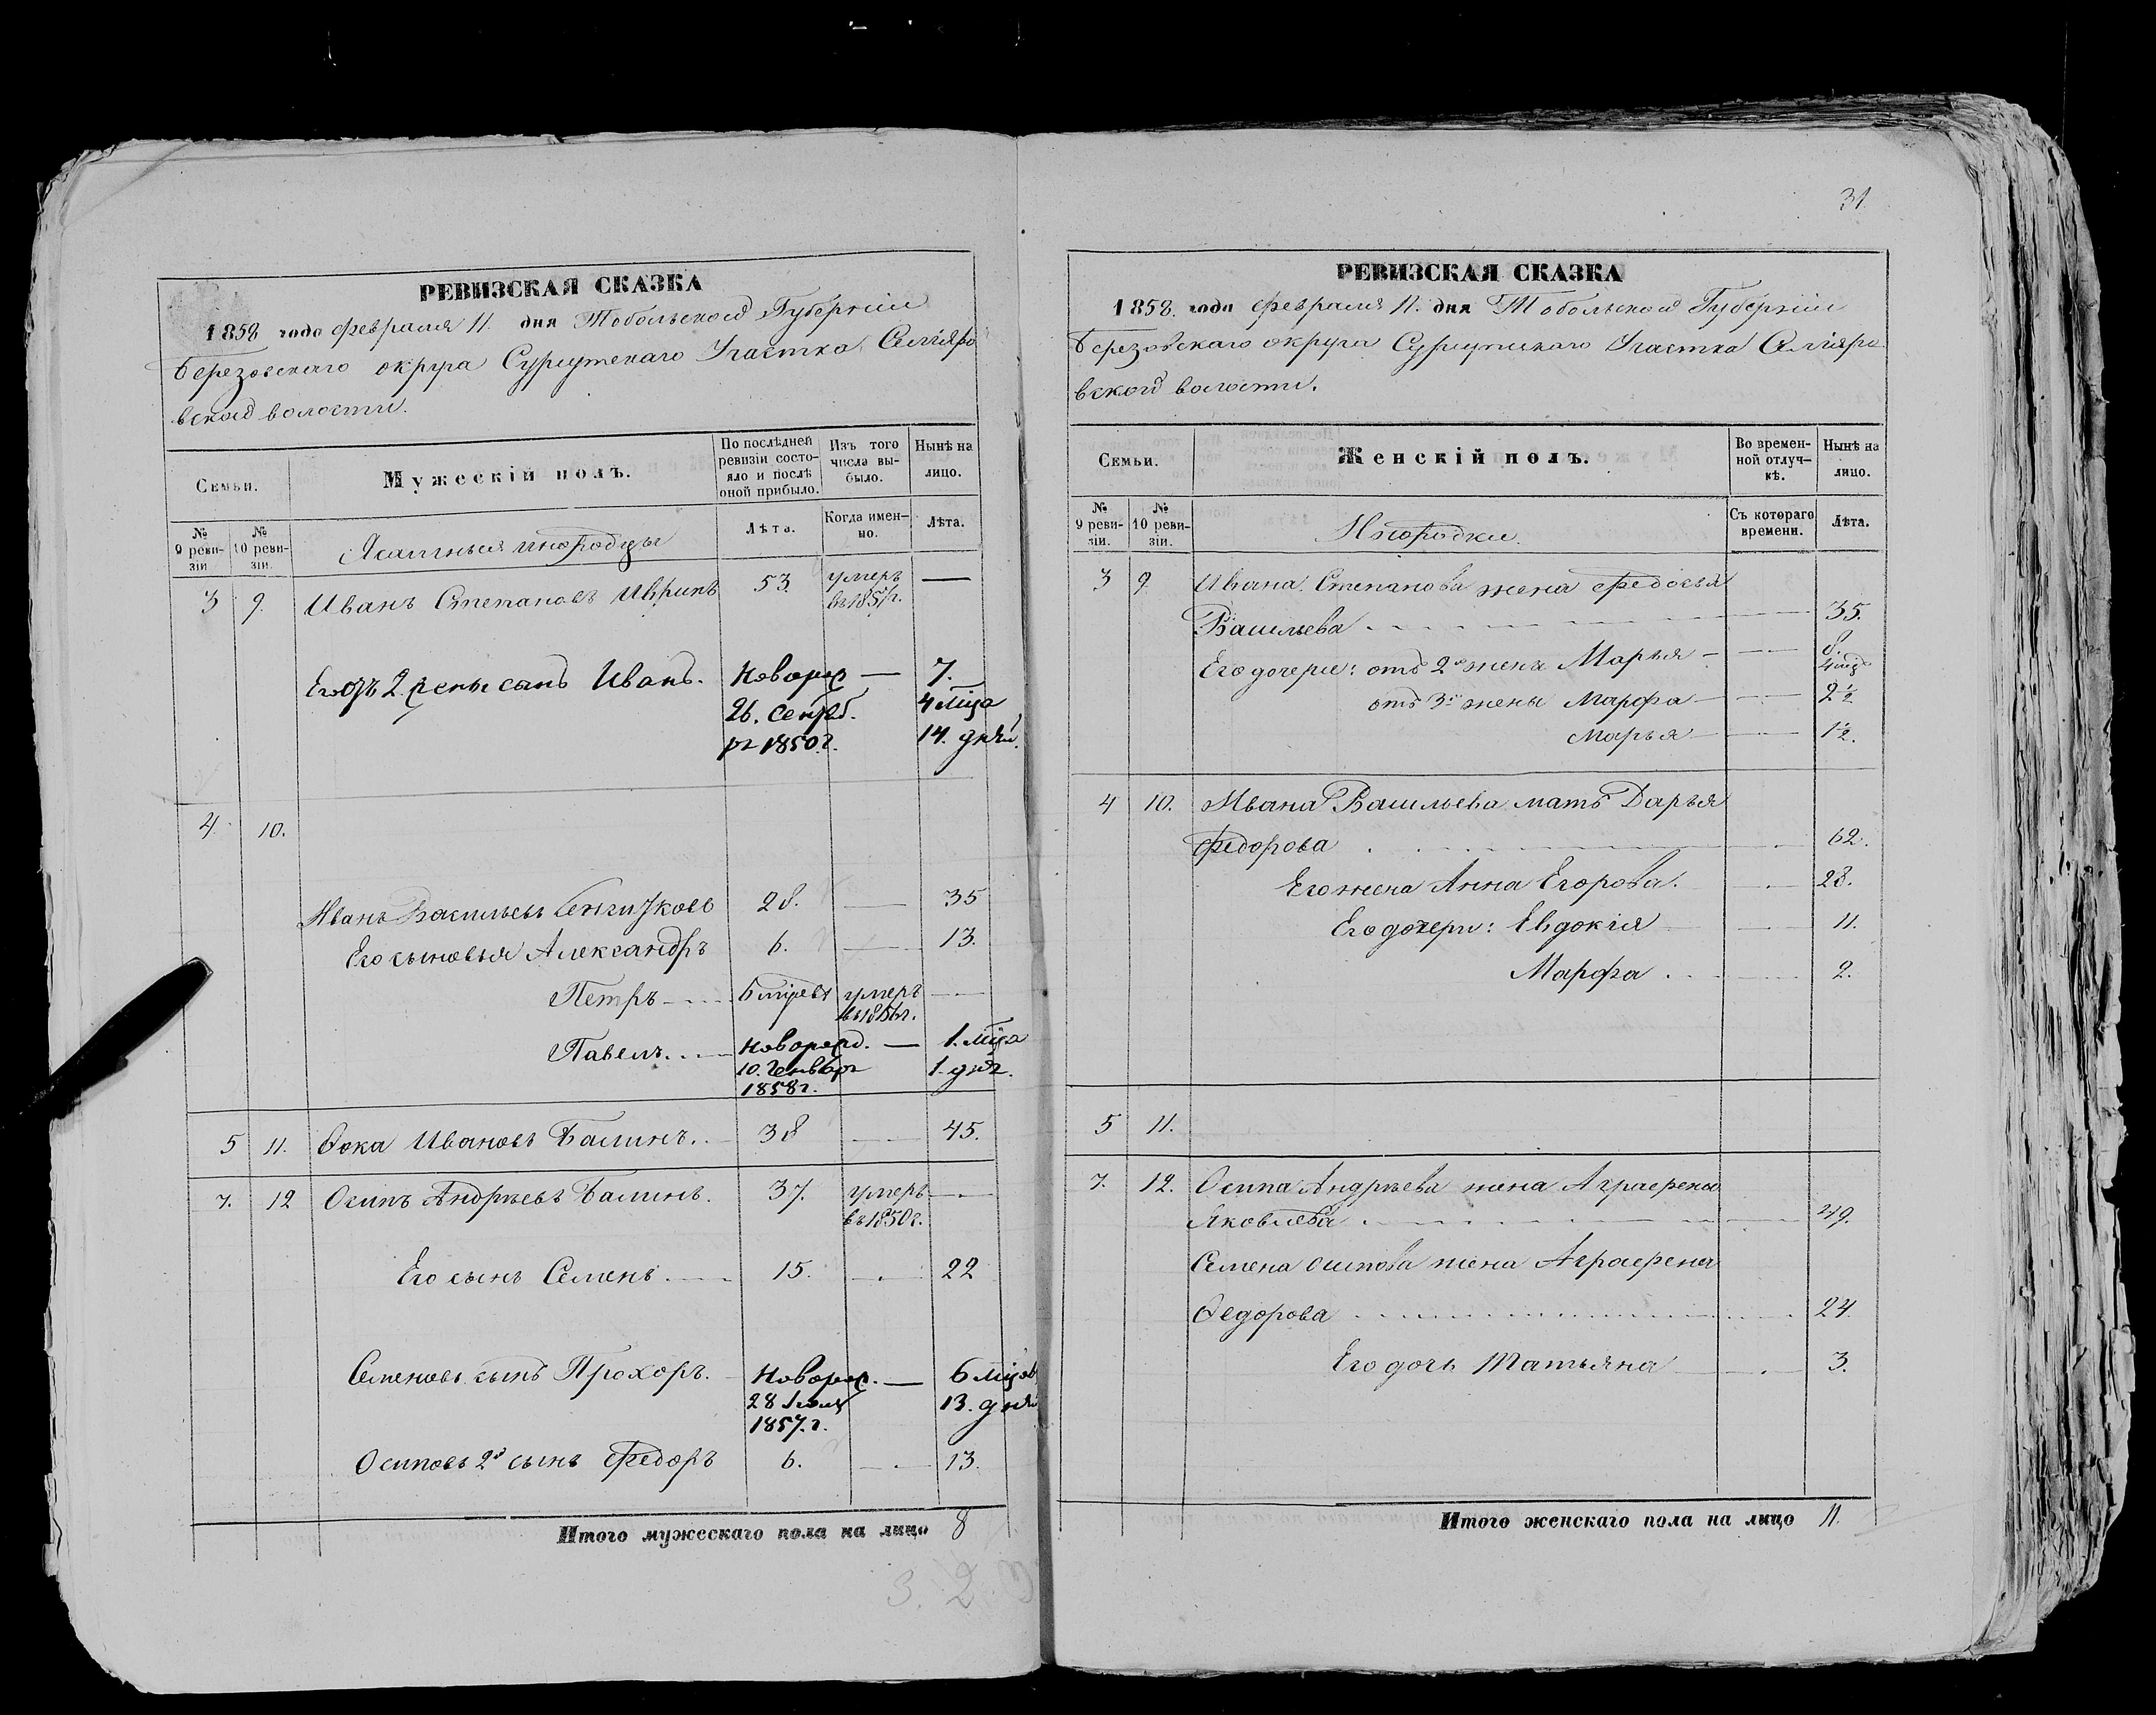 РЕВИЗСКАЯ СКАЗКА
1858 года февраля 11. дня Тобольской Губерніи
Березовскаго округа Сургутскаго Участка
вской волости.
Семьи.
Мужескій полъ.
По послѣдней ревизіи состояло и послѣ оной прибыло.
Изъ того числа выбыло.
Нынѣ на лицо.
№ 9 ревизіи
№ 10 ревизіи.
Ясашныя инородцы
Лѣта.
Когда именно.
Лѣта.
3 9. Иванъ Степановъ 53. умеръ въ 1857г. —
Его отъ 2 жены сынъ Иванъ. Новорож — 7.
26. Сентяб. 4 мца
1850.г. 14. дней.
4 10.
Иванъ Васильевъ 28. — 35
Его сыновья Александръ 6. — 13.
Петръ 6 мцевъ умеръ —
въ 1856г.
Павелъ Новорожд. — 1. мца
10. Генваря 1. дня.
1858г.
5 11. Фока Ивановъ Балинъ. 38 — 45.
7. 12 Осипъ Андреевъ Балинъ. 37. умеръ —
въ 1850г.
Его сынъ Семенъ 15. — 22
Семеновъ сынъ Прохоръ. Новорож. — 6 мцов
28 Іюля 13. дней
1857.г.
Осиповъ 2й сынъ Федоръ 6. — 13.
Итого мужескаго пола на лицо 8
31
РЕВИЗСКАЯ СКАЗКА
1858. года февраля 11. дня Тобольской Губерніи
Березовскаго округа Сургутскаго Участка
вской волости.
Семьи.
Женскій полъ.
Во временной отлучкѣ.
Нынѣ на лицо.
№ 9 ревизіи.
№ 10 ревизіи.
Инородки.
Съ котораго времени.
Лѣта.
3 9. Ивана Степанова жена Федосья
Васильева 35.
Его дочери: отъ 2й жены Марья — 8.
4 мца
отъ 3й жены Марфа — 2 ½
Марья — 1½.
4 10. Ивана Васильева мать Дарья
Федорова 62.
Его жена Анна Егорова. 28.
Его дочери: Евдокія 11.
Марфа 2.
5 11.
7. 12. Осипа Андреева жена Аграфена
Яковлева 49.
Семена Осипова жена Аграфена
Федорова 24.
Его дочь Татьяна 3.
Итого женскаго пола на лицо 11.